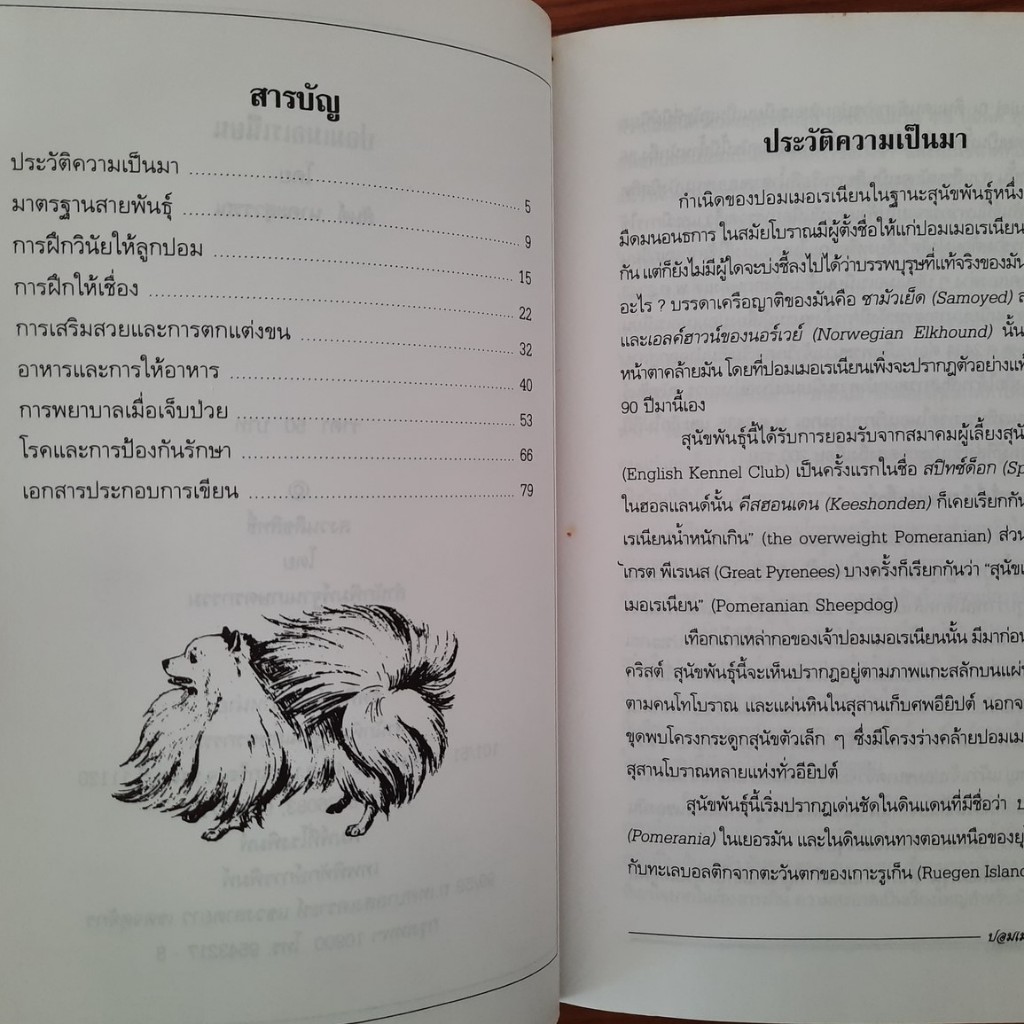 สารบัญ
ประวัติความเป็นมา 5
มาตรฐานสายพันธุ์ 9
การฝึกวินัยให้ลูกปอม 15
การฝึกให้เชื่อง 22
การเสริมสวยและการตกแต่งขน 32
อาหารและการให้อาหาร 40
การพยาบาลเมื่อเจ็บป่วย 53
โรคและการป้องกันรักษา 66
เอกสารประกอบการเขียน 79
ประวัติความเป็นมา
กำเนิดของปอมเมอเรเนียนในฐานะสุนัขพันธุ์หนึ่ง
มืดมนอนธการ ในสมัยโบราณมีผู้ตั้งชื่อให้แก่ปอมเมอเรเนียน
กัน แต่ก็ยังไม่มีผู้ใดจะบ่งชี้ลงไปได้ว่าบรรพบุรุษที่แท้จริงของมัน
อะไร ? บรรดาเครือญาติของมันคือ ซามัวเย็ด (Samoyed)
และเอลค์ฮาวน์ของนอร์เวย์ (Norwegian Elkhound) นั้น
หน้าตาคล้ายมัน โดยที่ปอมเมอเรเนียนเพิ่งจะปรากฏตัวอย่างแท้
90 ปีมานี้เอง
สุนัขพันธุ์นี้ได้รับการยอมรับจากสมาคมผู้เลี้ยงสุนั
(English Kennel Club) เป็นครั้งแรกในชื่อ สปิทซ์ด็อก (Sp
ในฮอลแลนด์นั้น คีสฮอนเดน (Keeshonden) ก็เคยเรียกกัน
เรเนียนน้ำหนักเกิน" (the overweight Pomeranian) ส่วน
ไกรต พีเรเนส (Great Pyrenees) บางครั้งก็เรียกกันว่า "สุนัข
เมอเรเนียน" (Pomeranian Sheepdog)
เทือกเถาเหล่ากอของเจ้าปอมเมอเรเนียนนั้น มีมาก่อน
คริสต์ สุนัขพันธุ์นี้จะเห็นปรากฏอยู่ตามภาพแกะสลักบนแผ่น
ตามคนโทโบราณ และแผ่นหินในสุสานเก็บศพอียิปต์ นอกจ
ขุดพบโครงกระดูกสุนัขตัวเล็ก ๆ ซึ่งมีโครงร่างคล้ายปอมเม
สุสานโบราณหลายแห่งทั่วอียิปต์
สุนัขพันธุ์นี้เริ่มปรากฏเด่นชัดในดินแดนที่มีชื่อว่า
(Pomerania) ในเยอรมัน และในดินแดนทางตอนเหนือของยุ
กับทะเลบอลติกจากตะวันตกของเกาะรูเก็น (Ruegen Island
ปอมเม